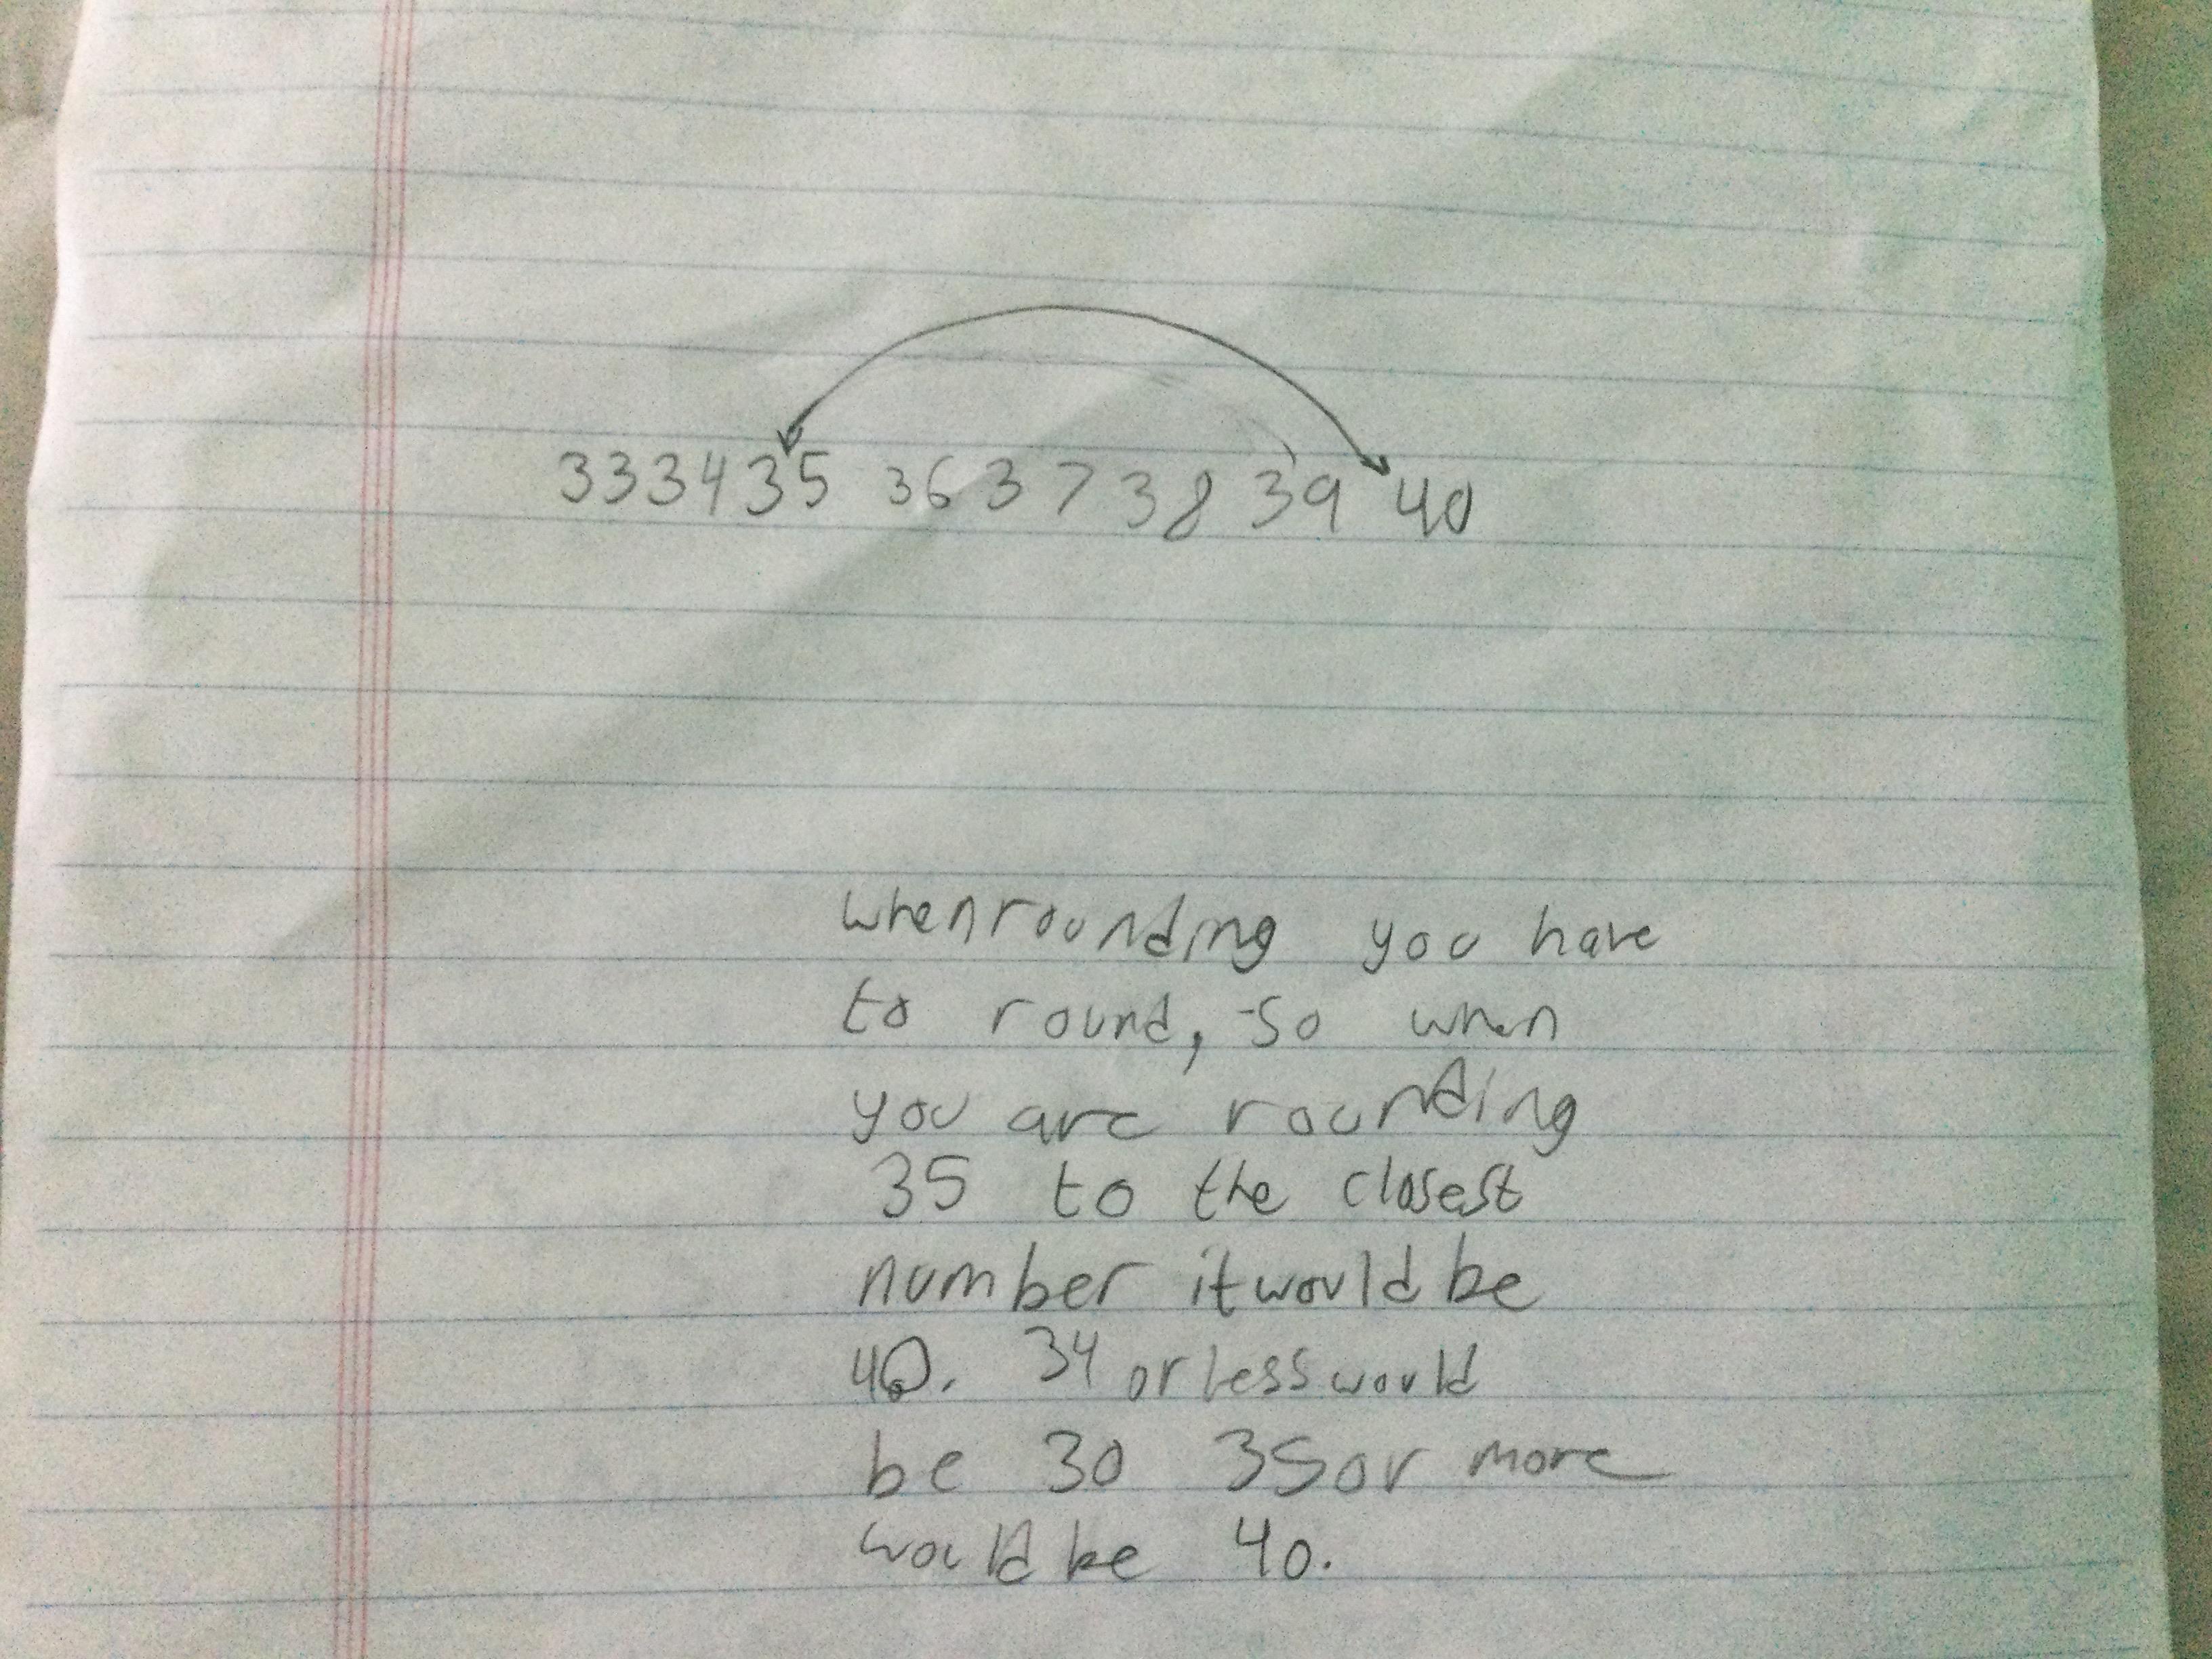 33 34 35 36 37 38 39 40
when rounding you have
to round, so when
you are rounding
35 to the closest
number it would be
40. 34 or less would
be 30 35 or more
would be 40.